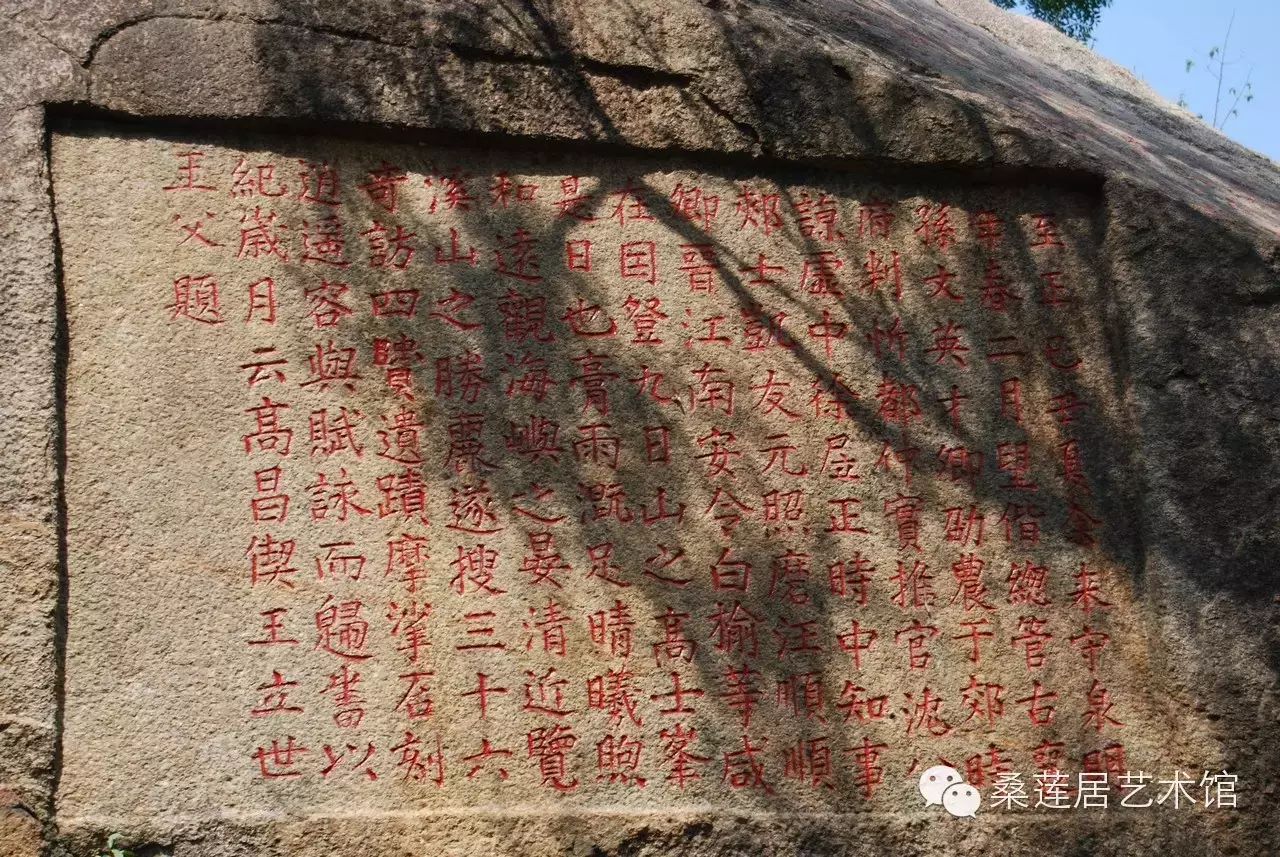 至正己丑夏余来守泉明
年春二月望偕總管古襄
孫文英才卿劭農于郊時
府判忻都仲實推官沈公
諒虛中徐居正時中知事
郟士凱友元照磨汪順順
卿晋江南安令白榆等咸
在因登九日山之髙士峯
是日也膏雨溉足晴曦煦
和遠觀海嶼之晏清近覽
溪山之勝麗遂搜三十六
奇訪四賢遺蹟摩挲石刻
逍遥容與賦詠而歸書以
紀歲月云髙昌偰玉立世
玉父題
桑莲居艺术馆